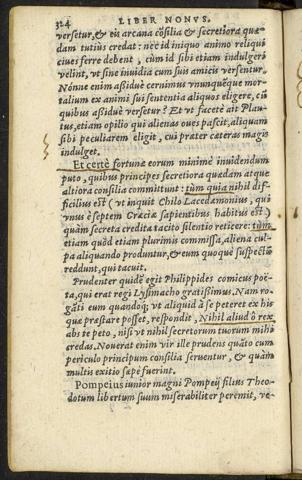 324 LIBER NONVS.
versetur, & eis arcana cõsilia & secretiora quæ-
dam tutius credat: nec id iniquo animo reliqui
ciues ferre debent, cùm id sibi etiam indulgeri
velint, vt sine inuidia cum suis amicis versentur.
Nónne enim aßiduè cernimus vnunquẽque mor-
talium ex animi sui sententia aliquos eligere, cũ
quibus aßiduè versetur? Et vt facetè ait Plau-
tus, etiam opilio qui alienas oues pascit, aliquam
sibi peculiarem eligit, cui præter cæteras magis
indulget.
Et certè fortunæ eorum minimè inuidendum
puto, quibus principes secretiora quædam atque
altiora consilia committunt: tùm quia nihil dif-
ficilius est (vt inquit Chilo Lacedæmonius, qui
vnus è septem Græciæ sapientibus habitus est)
quàm secreta credita tacito silentio reticere: tùm
etiam quòd etiam plurimis commissa, aliena cul-
pa aliquando produntur, & eum quoque suspectũ
reddunt, qui tacuit.
Prudenter quidẽ egit Philippides comicus poë-
ta, qui erat regi Lysimacho gratißimus. Nam ro-
gãti eum quandoq; vt aliquid à se peteret ex his
quæ præstare posset, respondit, Nihil aliud ô rex
abs te peto, nisi vt nihil secretorum tuorum mihi
credas. Nouerat enim vir ille prudens quãto cum
periculo principum consilia seruentur, & quàm
multis exitio sæpè fuerint.
Pompeius iunior magni Pompeij filius Theo-
dotum libertum suum miserabiliter peremit, ve-